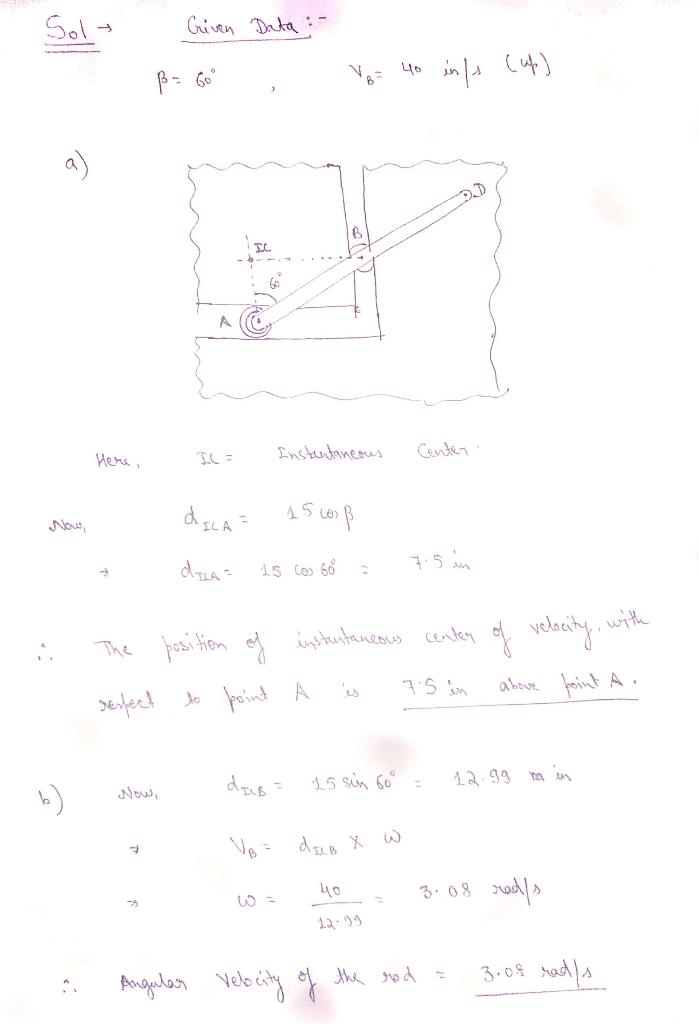 Sol → Given Data :-
β = 60° , V_B = 40 in/s (up)
a)
D
B
IC
60°
A
Here, IC = Instantaneous Center.
Now, d_ICA = 15 cos β
→ d_ICA = 15 cos 60° = 7.5 in
∴ The position of instantaneous center of velocity, with
respect to point A is 7.5 in above point A.
b) Now, d_ICB = 15 sin 60° = 12.99 in
→ V_B = d_ICB × ω
→ ω = 40 / 12.99 = 3.08 rad/s
∴ Angular Velocity of the rod = 3.08 rad/s